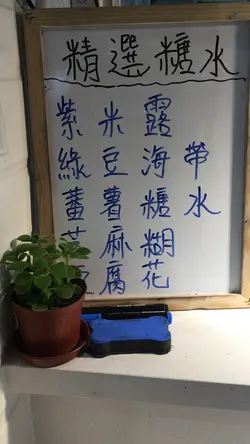 精選糖水
紫米露
綠豆海帶
蕃薯糖水
芝麻糊
腐花